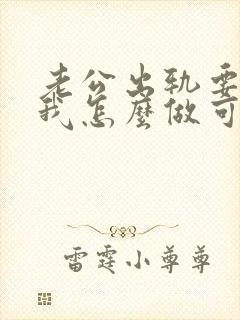 老公出轨要
我怎麼做可
雷霆小尊尊